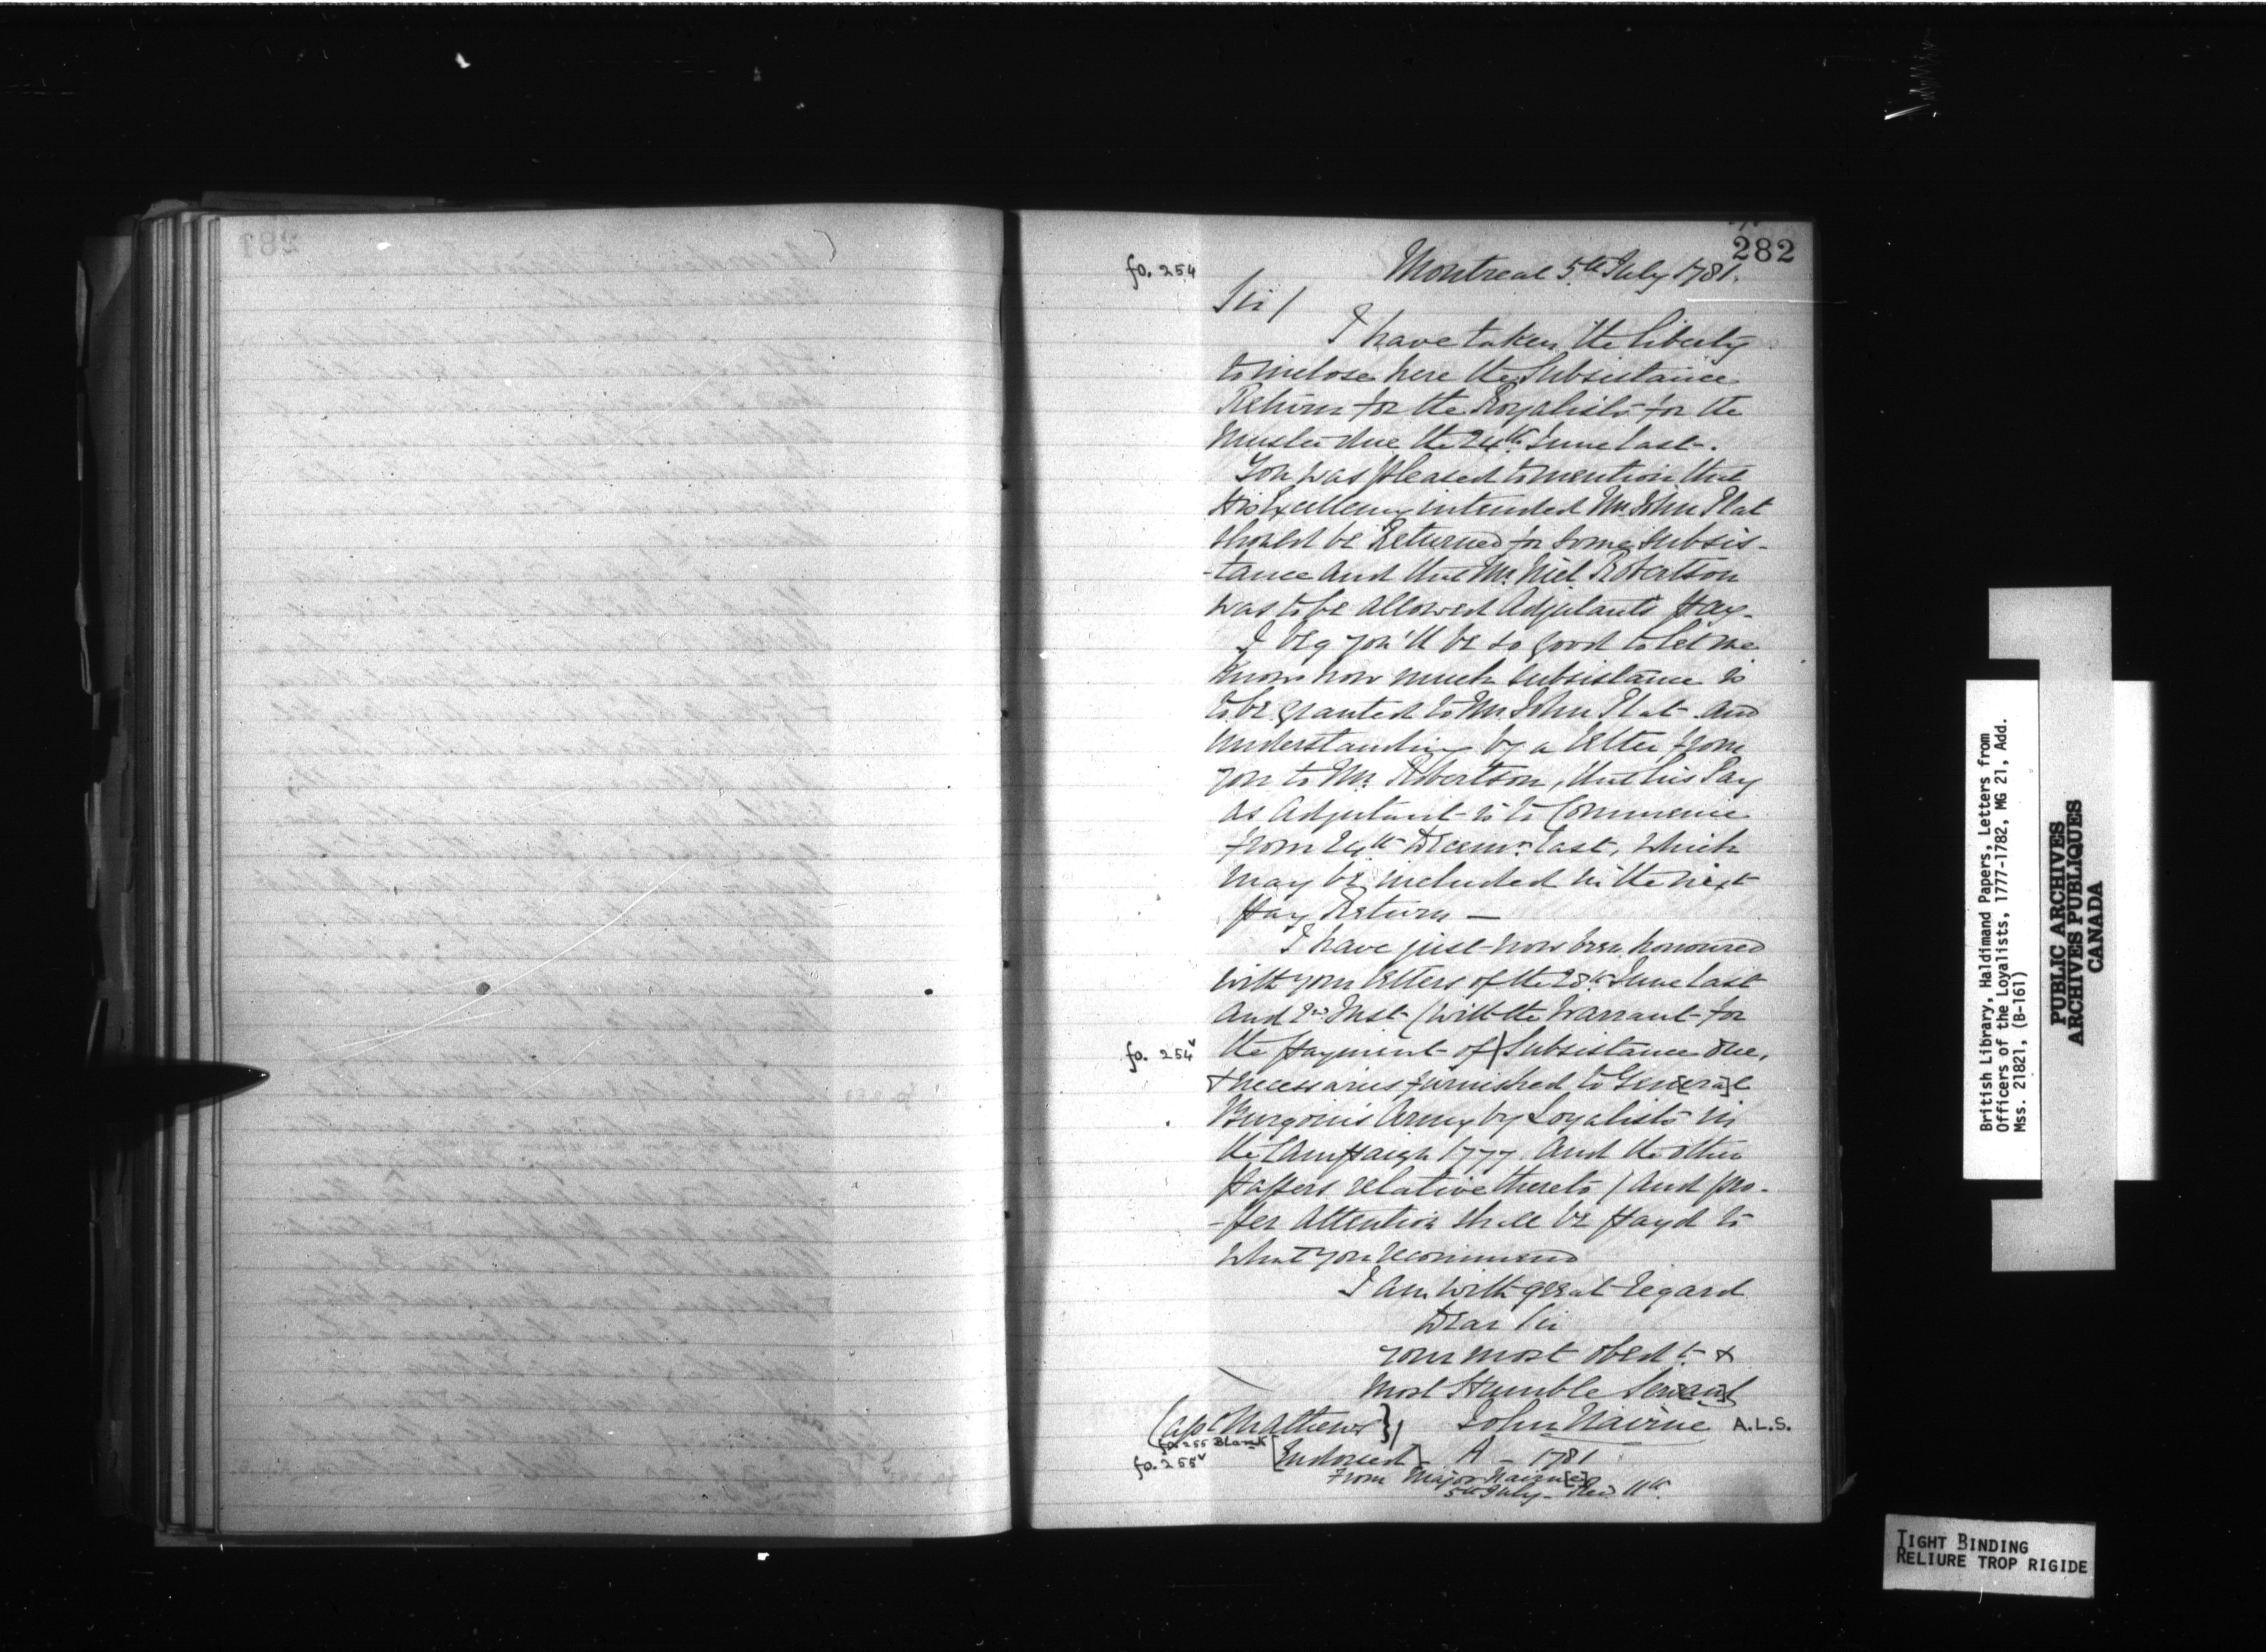 282
fo. 254
Montreal 5th July 1781.
Sir/
I have taken the liberty
to inclose here the Subsistance
Return for the Royalists for the
Muster due the 24th June last.
You was pleased to mention that
His Excellency intended Mr. John Plat
should be Returned for some subsis-
-tance and that Mr. Niel Robertson
was to be allowed Adjutants Pay.
I beg you'll be so good to let me
know how much subsistance is
to be granted to Mr. John Plat and
understanding by a letter from
you to Mr. Robertson, that his Pay
as Adjutant is to Commence
from 24th Decemr. last, which
may be included in the next
Pay Return —
I have just now been honoured
with your letters of the 28th June last
and 2nd Inst (with the Warrant for
fo. 254v
the payment of Subsistance due,
& necessaries furnished to Gen[era]l
Burgoine's Army by Loyalists in
the Campaign 1777 and the other
Papers relative thereto) and pro-
-per Attention shall be payd to
what you recommend
I am with great regard
Dear Sir
your most obedt. &
most Humble Ser[van]t
Capt Mathews}
John Nairne A.L.S.
fo. 255 Blank
fo. 255v
[Endorsed] A – 1781
From Major Nairn[e]
5th July – Red 11th.
British Library, Haldimand Papers, Letters from
Officers of the Loyalists, 1777-1782, MG 21, Add.
Mss. 21821, (B-161)
PUBLIC ARCHIVES
ARCHIVES PUBLIQUES
CANADA
TIGHT BINDING
RELIURE TROP RIGIDE